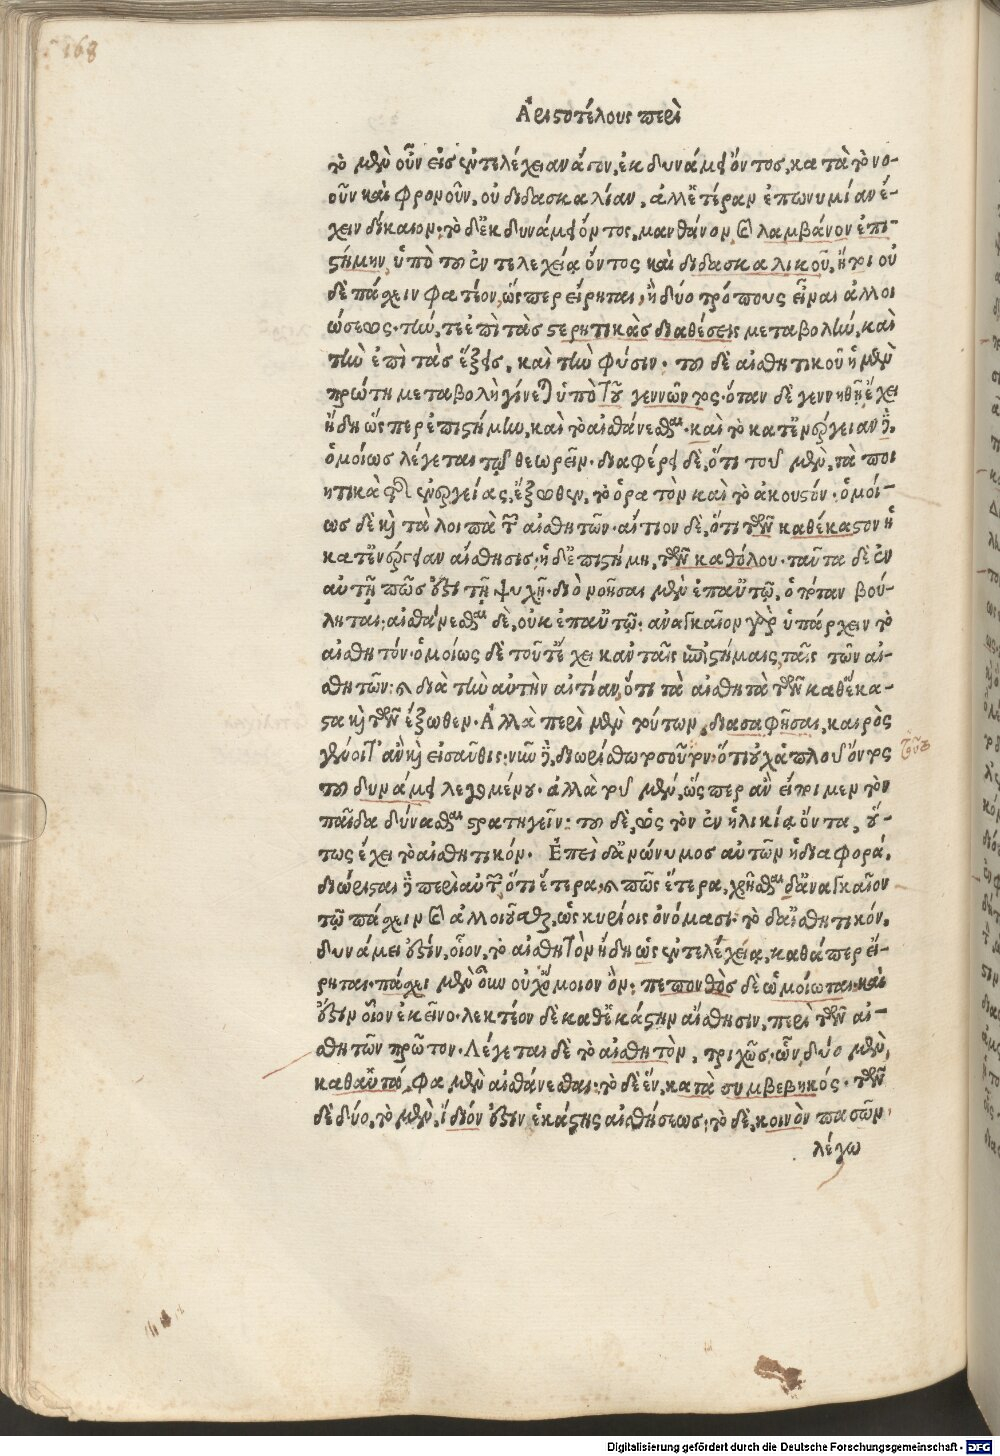 168
Ἀριστοτέλους περὶ
τὸ μὲν οὖν εἰς ἐντελέχειαν ἄγον, ἐκ δυνάμει ὄντος, κατὰ τὸ νο-
οῦν καὶ φρονοῦν, οὐ διδασκαλίαν, ἀλλ' ἑτέραν ἐπωνυμίαν ἔ-
χειν δίκαιον· τὸ δ' ἐκ δυνάμει ὄντος, μανθάνον, καὶ λαμβάνον ἐπι-
στήμην, ὑπὸ τοῦ ἐντελεχείᾳ ὄντος καὶ διδασκαλικοῦ, ἤτοι οὐ
δὲ πάσχειν φατέον, ὥσπερ εἴρηται, ἢ δύο τρόπους εἶναι ἀλλοι
ώσεως· τήν, τε ἐπὶ τὰς στερητικὰς διαθέσεις μεταβολὴν, καὶ
τὴν ἐπὶ τὰς ἕξεις, καὶ τὴν φύσιν· τοῦ δὲ αἰσθητικοῦ ἡ μὲν
πρώτη μεταβολὴ γίνεται ὑπὸ τοῦ γεννῶντος· ὅταν δὲ γεννηθῇ, ἔχει
ἤδη ὥσπερ ἐπιστήμην, καὶ τὸ αἰσθάνεσθαι· καὶ τὸ κατ' ἐνέργειαν δὲ,
ὁμοίως λέγεται τῷ θεωρεῖν· διαφέρει δὲ, ὅτι τοῦ μὲν, τὰ ποι
ητικὰ τῆς ἐνεργείας, ἔξωθεν, τὸ ὁρατὸν καὶ τὸ ἀκουστόν· ὁμοί-
ως δὲ καὶ τὰ λοιπὰ τῶν αἰσθητῶν· αἴτιον δὲ, ὅτι τῶν καθέκαστον ἡ
κατ' ἐνέργειαν αἴσθησις· ἡ δ' ἐπιστήμη, τῶν καθόλου· ταῦτα δὲ ἐν
αὐτῇ πῶς ἐστι τῇ ψυχῇ· διὸ νοῆσαι μὲν ἐπ' αὐτῷ, ὁπόταν βού-
ληται· αἰσθάνεσθαι δὲ, οὐκ ἐπ' αὐτῷ· ἀναγκαῖον γὰρ ὑπάρχειν τὸ
αἰσθητόν· ὁμοίως δὲ τοῦτ' ἔχει κἀν ταῖς ἐπιστήμαις, ταῖς τῶν αἰ-
σθητῶν· καὶ διὰ τὴν αὐτὴν αἰτίαν, ὅτι τὰ αἰσθητὰ τῶν καθέκα-
στα καὶ τῶν ἔξωθεν· Ἀλλὰ περὶ μὲν τούτων, διασαφῆσαι, καιρὸς
γένοιτ' ἂν καὶ εἰσαῦθις· νῦν δὲ, διωρίσθω τοσοῦτον· ὅτι οὐχ ἁπλοῦ ὄντος
τοῦ δυνάμει λεγομένου· ἀλλὰ τοῦ μὲν, ὥσπερ ἂν εἴποιμεν τὸν
παῖδα δύνασθαι στρατηγεῖν· τοῦ δὲ, ὡς τὸν ἐν ἡλικίᾳ ὄντα, οὕ-
τως ἔχει τὸ αἰσθητικόν· Ἐπεὶ δ' ἀνώνυμος αὐτῶν ἡ διαφορά,
διώρισται δὲ περὶ αὐτῶν, ὅτι ἕτερα, καὶ πῶς ἕτερα, χρῆσθαι δ' ἀναγκαῖον
τῷ πάσχειν καὶ ἀλλοιοῦσθαι, ὡς κυρίοις ὀνόμασι· τὸ δ' αἰσθητικόν,
δυνάμει ἐστίν, οἷον, τὸ αἰσθητὸν ἤδη ὡς ἐντελεχείᾳ, καθάπερ εἴ-
ρηται· πάσχει μὲν οὖν οὐχ ὅμοιον ὄν· πεπονθὸς δὲ ὡμοίωται· καὶ
ἔστιν οἷον ἐκεῖνο· λεκτέον δὲ καθ' ἑκάστην αἴσθησιν, περὶ τῶν αἰ-
σθητῶν πρῶτον· Λέγεται δὲ τὸ αἰσθητὸν, τριχῶς· ὧν, δύο μὲν,
καθαὑτά, φαμὲν αἰσθάνεσθαι· τὸ δὲ ἓν, κατὰ συμβεβηκός· τῶν
δὲ δύο, τὸ μὲν, ἴδιόν ἐστιν ἑκάστης αἰσθήσεως· τὸ δὲ, κοινὸν πασῶν·
λέγω
Digitalisierung gefördert durch die Deutsche Forschungsgemeinschaft - DFG